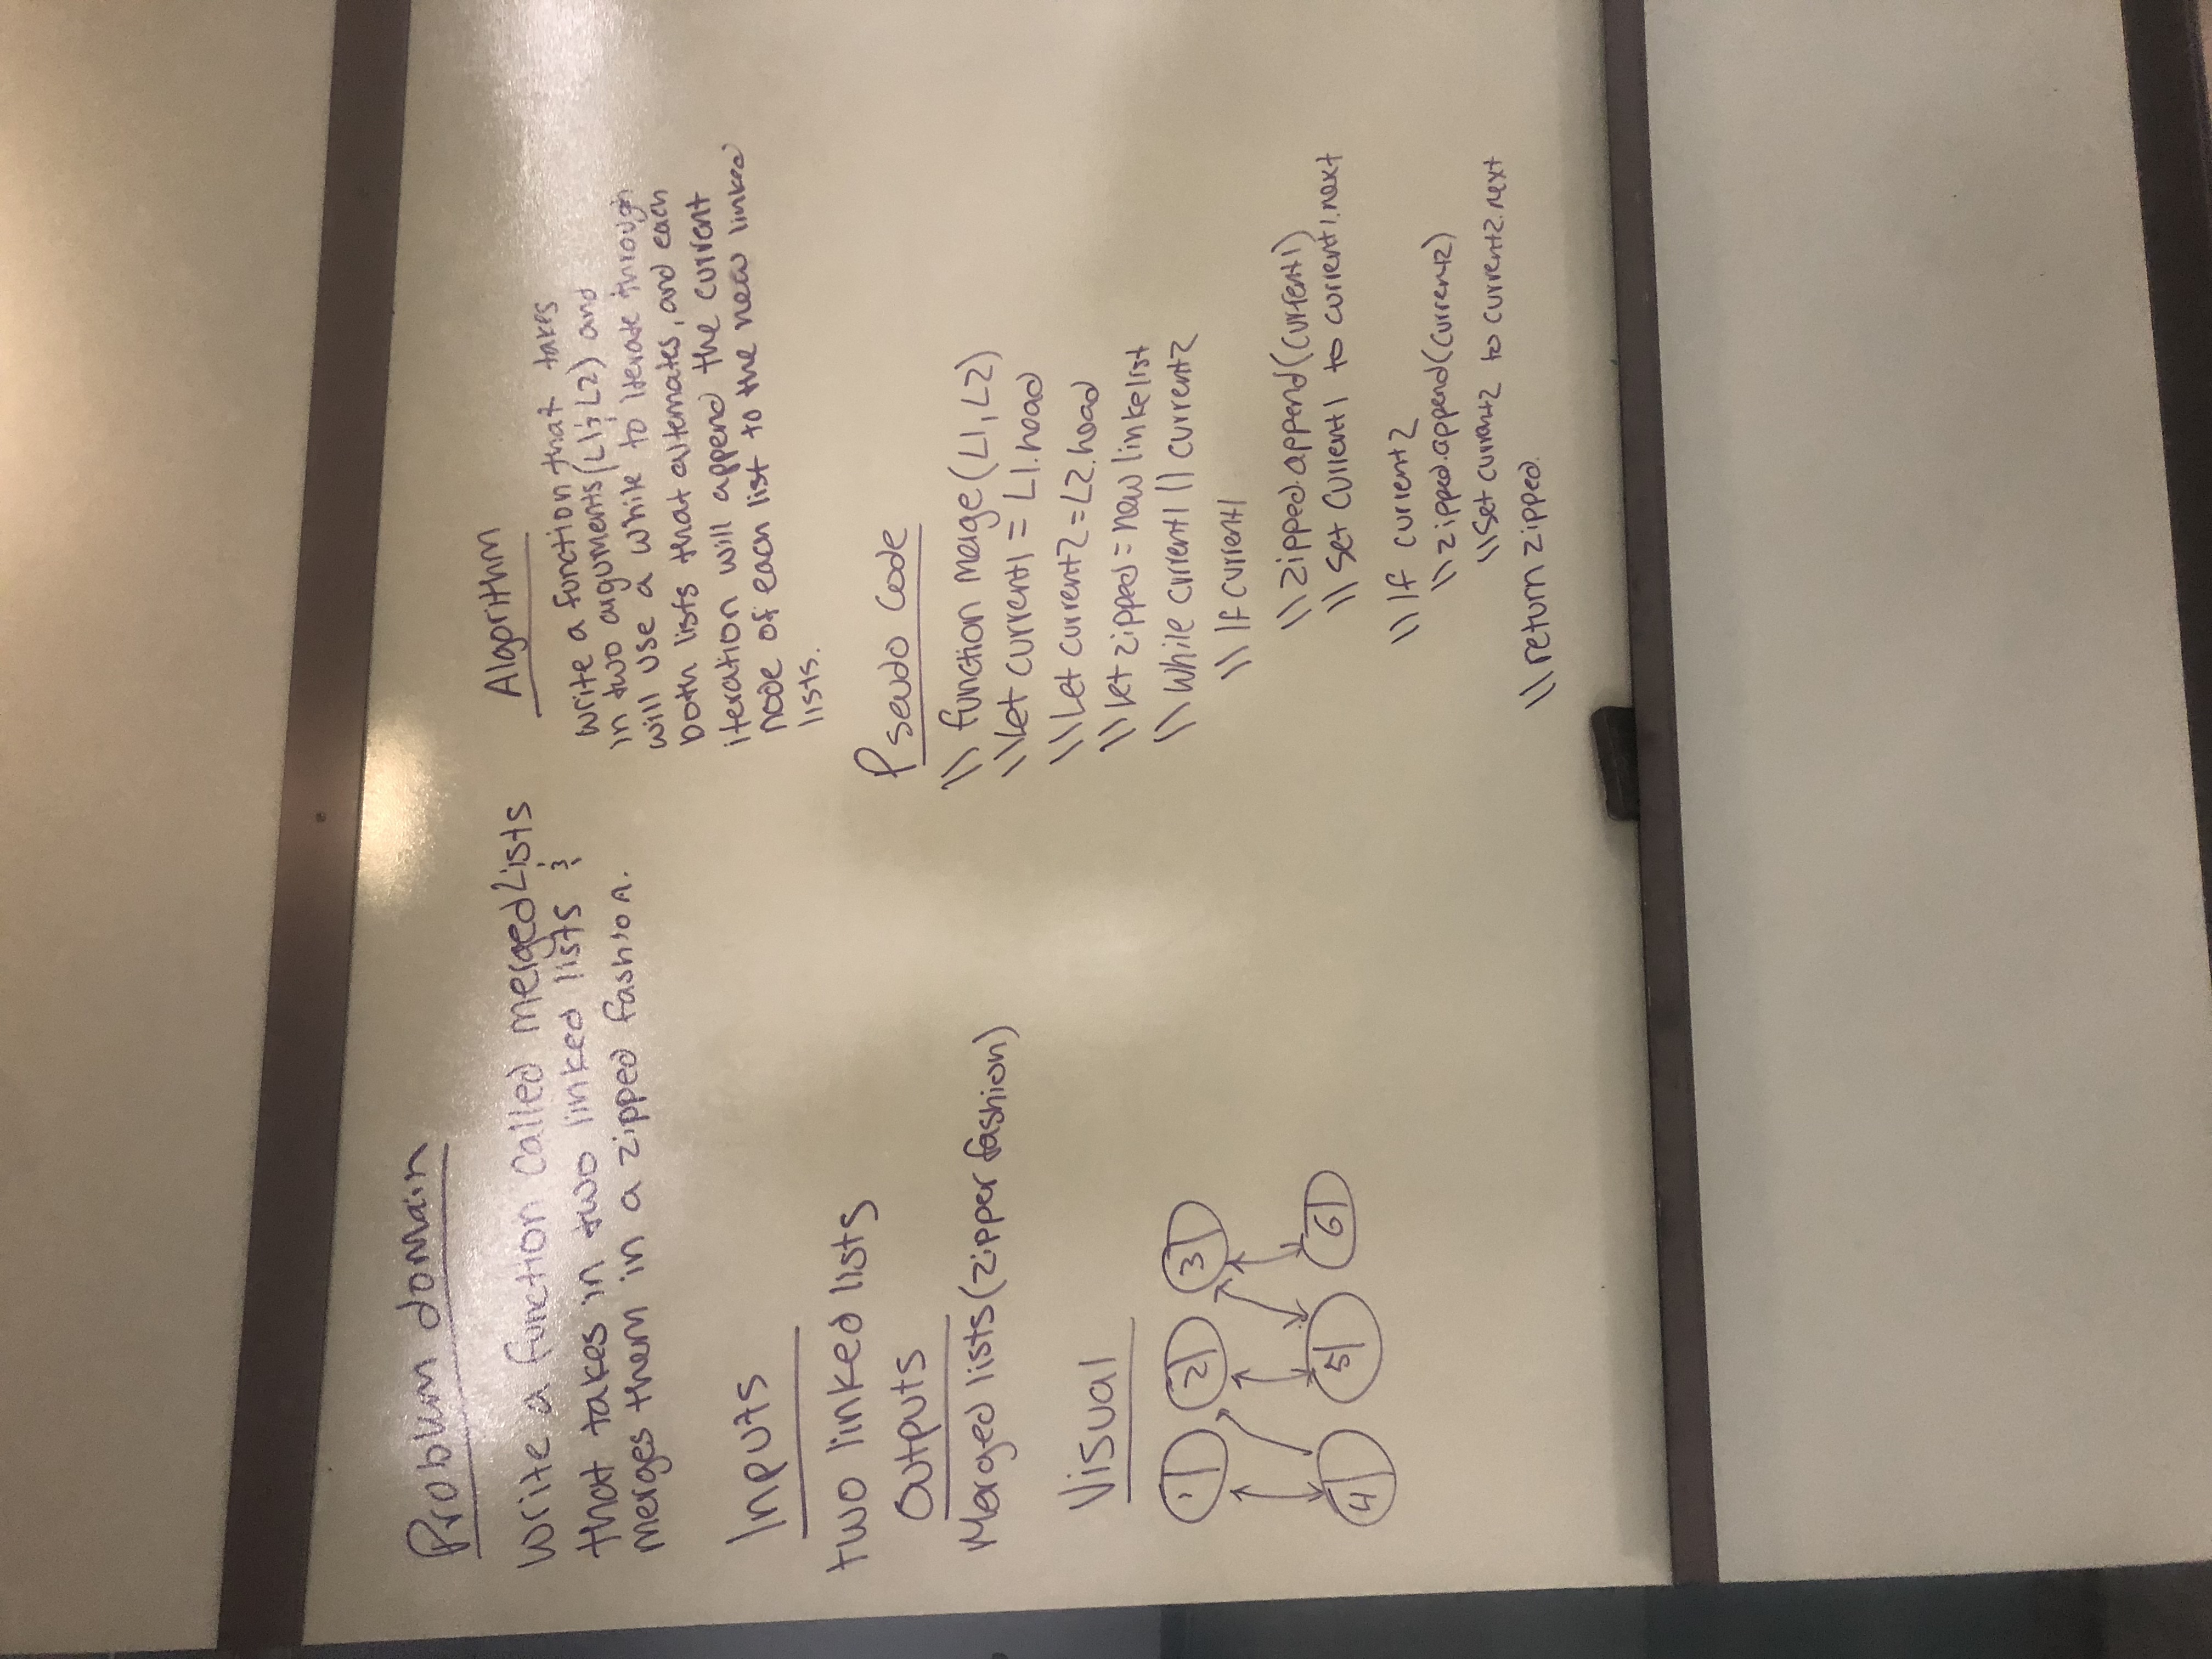 Problem domain
Write a function called mergedLists
that takes in two linked lists &
merges them in a zipped fashion.
Inputs
two linked lists
Outputs
Merged lists (zipper fashion)
Visual
1 2 3
4 5 6
Algorithm
write a function that takes
in two arguments (L1 & L2) and
will use a while to iterate through
both lists that alternates, and each
iteration will append the current
node of each list to the new linked
lists.
Pseudo Code
\\ function merge (L1, L2)
\\ Let current1 = L1.head
\\ Let current2 = L2.head
\\ Let zipped = new linkelist
\\ While current1 || current2
\\ If current1
\\ zipped.append(current1)
\\ Set current1 to current1.next
\\ If current2
\\ zipped.append(current2)
\\ Set current2 to current2.next
\\ return zipped.